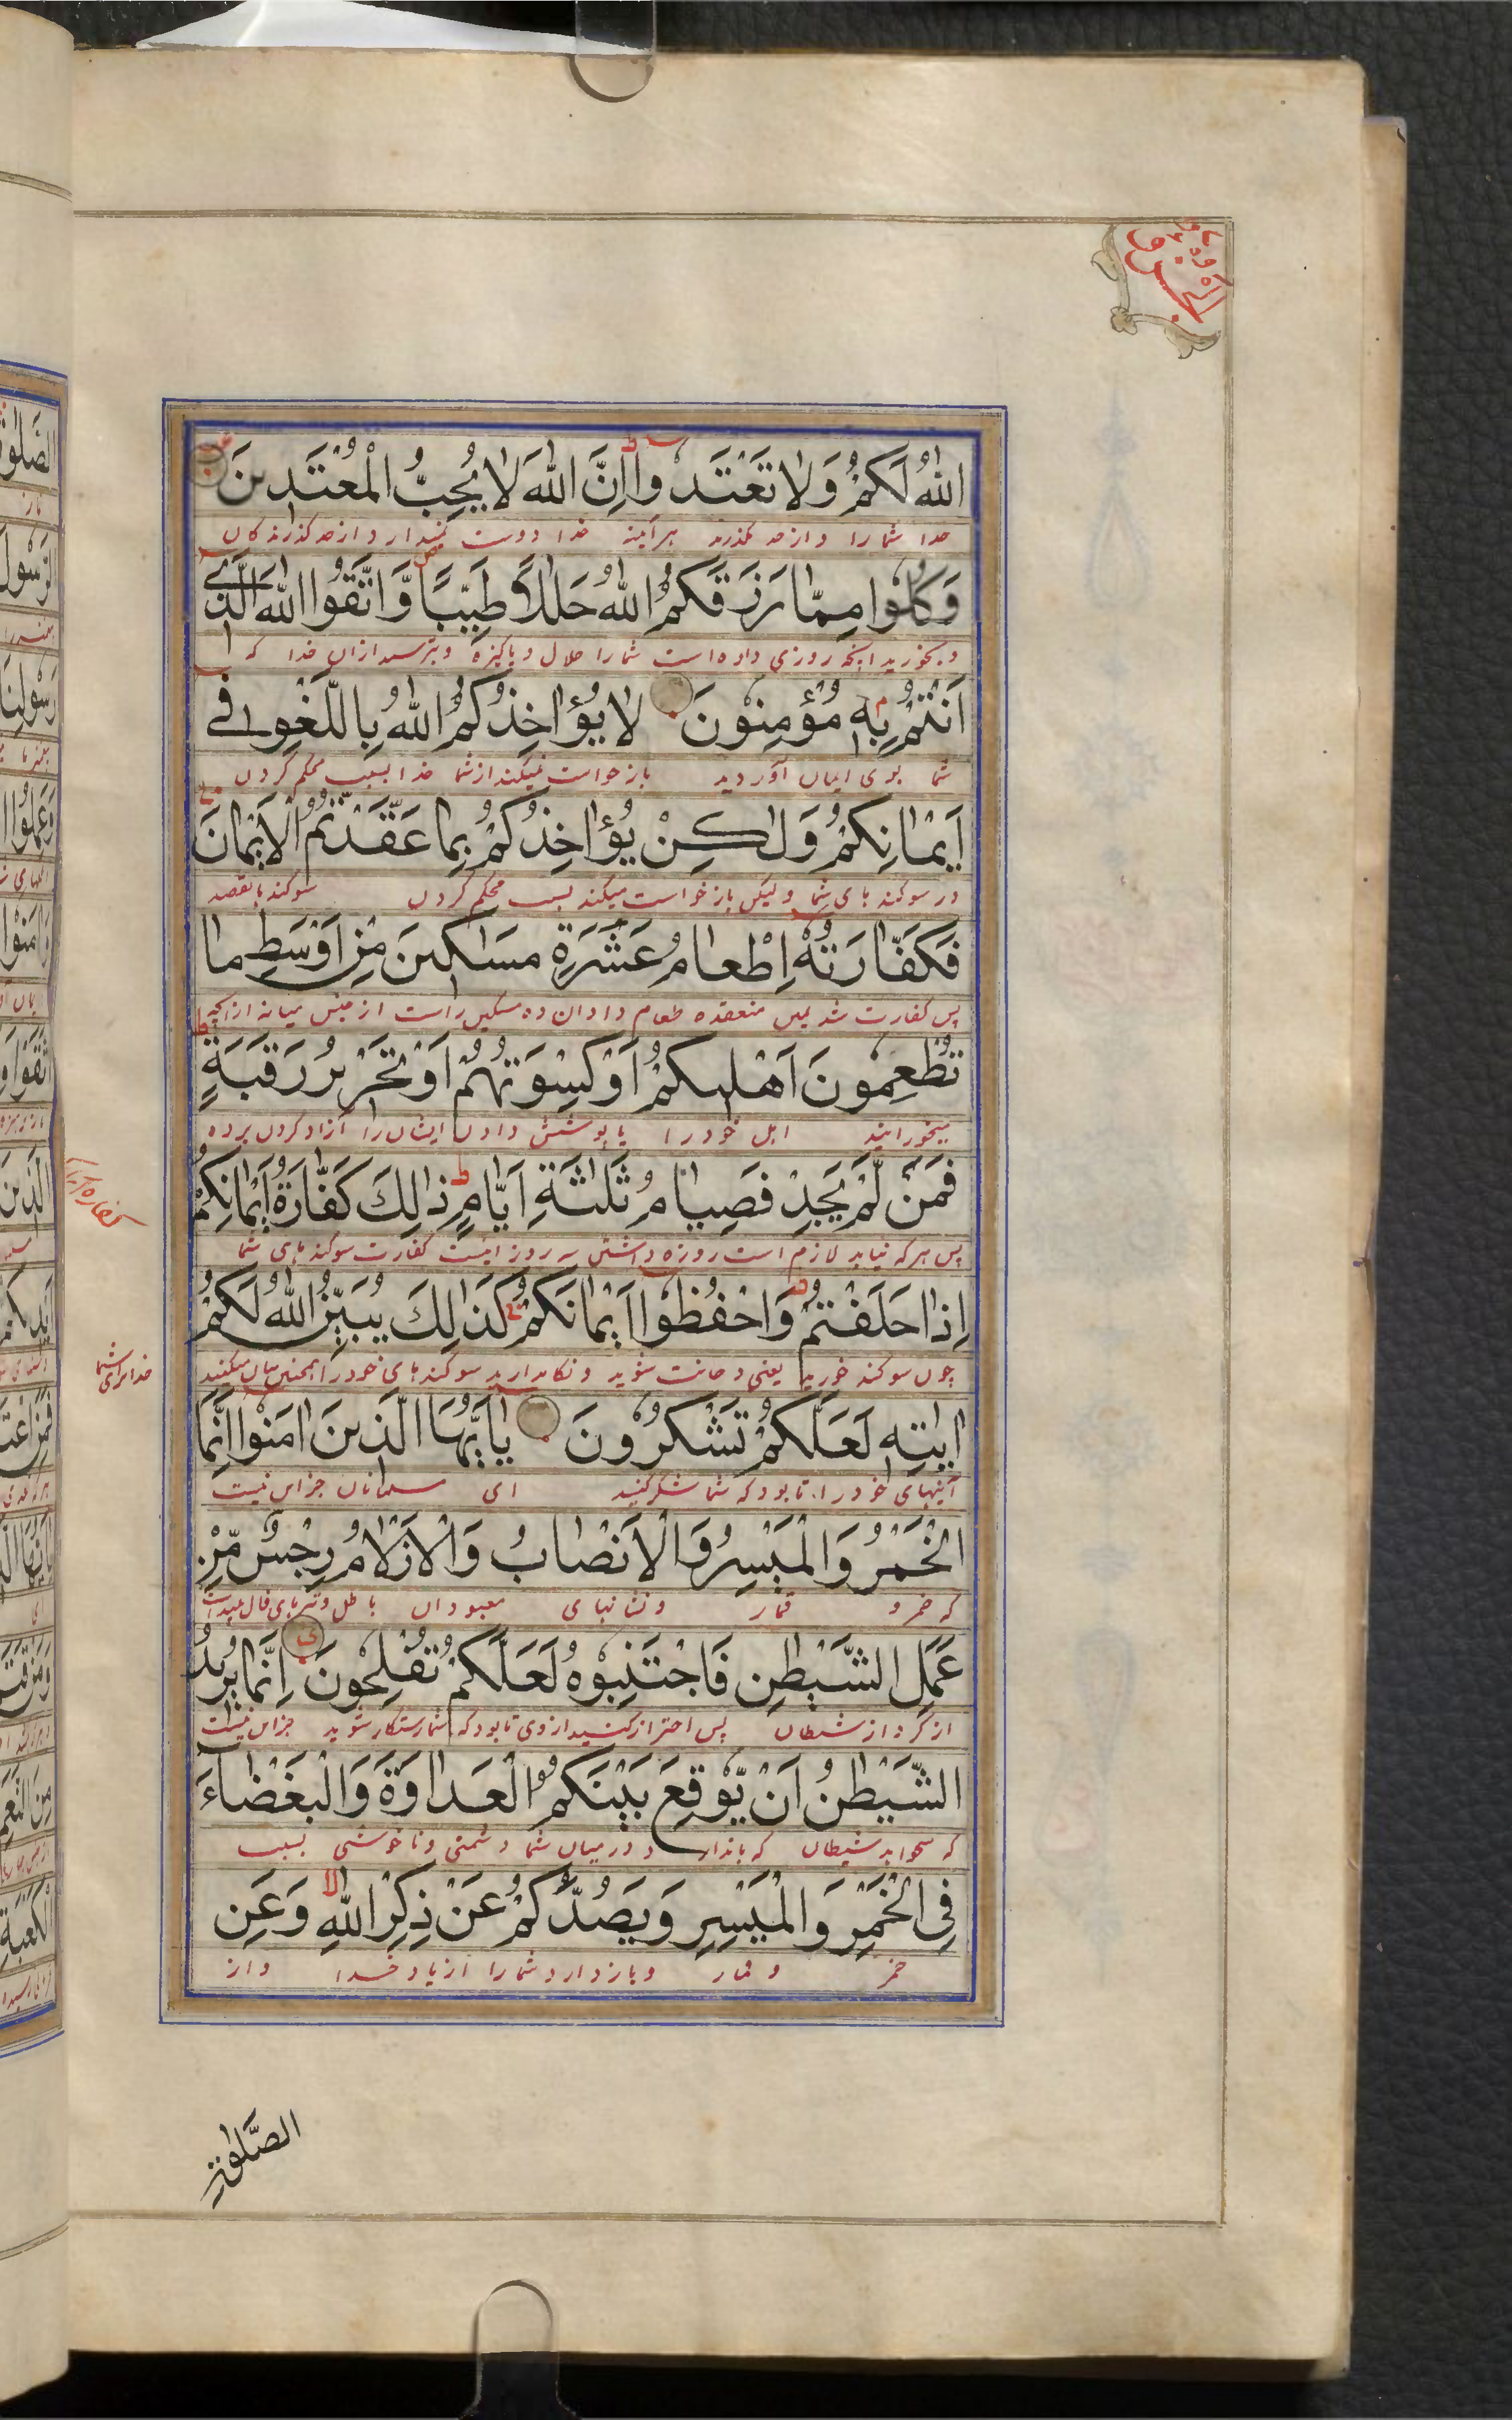 اللهُ لَكُمْ وَلَا تَعْتَدُوا اِنَّ اللهَ لَا يُحِبُّ الْمُعْتَدِينَ
خدا شما را و از حد مگذرید هر آینه خدا دوست نمیدارد از حد گذرندگان
وَكُلُوا مِمَّا رَزَقَكُمُ اللهُ حَلٰلًا طَيِّبًا وَّاتَّقُوا اللهَ الَّذِي
و بخورید آنچه روزی داده است شما را حلال و پاکیزه و بترسید ازان خدا که
اَنْتُمْ بِهٖ مُؤْمِنُونَ لَا يُؤَاخِذُكُمُ اللهُ بِاللَّغْوِ فِي
شما بوی ایمان آوردید بازخواست نمیکند از شما خدا بسبب محکم کردن
اَيْمَانِكُمْ وَلٰكِنْ يُؤَاخِذُكُمْ بِمَا عَقَّدْتُمُ الْاَيْمَانَ
در سوکند های شما ولیکن بازخواست میکند بسبب محکم کردن سوکند بالقصد
فَكَفَّارَتُهٗ اِطْعَامُ عَشَرَةِ مَسَاكِينَ مِنْ اَوْسَطِ مَا
پس کفارت یمین منعقده طعام دادان ده مسکین راست از جنس میانه ازانچه
تُطْعِمُونَ اَهْلِيكُمْ اَوْ كِسْوَتُهُمْ اَوْ تَحْرِيرُ رَقَبَةٍ
میخورانید اهل خود را یا پوشش دادن ایشان را آزاد کردن برده
فَمَنْ لَّمْ يَجِدْ فَصِيَامُ ثَلٰثَةِ اَيَّامٍ ذٰلِكَ كَفَّارَةُ اَيْمَانِكُمْ
پس هر که نیابد لازم است روزه داشتن سه روز اینست کفارت سوکند های شما
اِذَا حَلَفْتُمْ وَاحْفَظُوا اَيْمَانَكُمْ كَذٰلِكَ يُبَيِّنُ اللهُ لَكُمْ
چون سوکند خورید یعنی و حانث شوید و نکاه دارید سوکند های خود را همچنین بیان میکند
خدا برای شما
اٰيٰتِهٖ لَعَلَّكُمْ تَشْكُرُونَ يٰاَيُّهَا الَّذِينَ اٰمَنُوا اِنَّمَا
آیتهای خود را تا بود که شما شکر کنید ای مسلمانان جز این نیست
الْخَمْرُ وَالْمَيْسِرُ وَالْاَنْصَابُ وَالْاَزْلَامُ رِجْسٌ مِّنْ
که خمر و قمار و نشانهای معبودان باطل و تیر های فال پلید است
عَمَلِ الشَّيْطٰنِ فَاجْتَنِبُوهُ لَعَلَّكُمْ تُفْلِحُونَ اِنَّمَا يُرِيدُ
از کردار شیطان پس احتراز کنید از وی تا بود که شما رستکار شوید جز این نیست
الشَّيْطٰنُ اَنْ يُّوقِعَ بَيْنَكُمُ الْعَدَاوَةَ وَالْبَغْضَاءَ
که میخواهد شیطان که باندازد در میان شما دشمنی و ناخوشی بسبب
فِي الْخَمْرِ وَالْمَيْسِرِ وَيَصُدَّكُمْ عَنْ ذِكْرِ اللهِ وَعَنِ
خمر و قمار و باز دارد شما را از یاد خدا و از
الصَّلٰوةِ